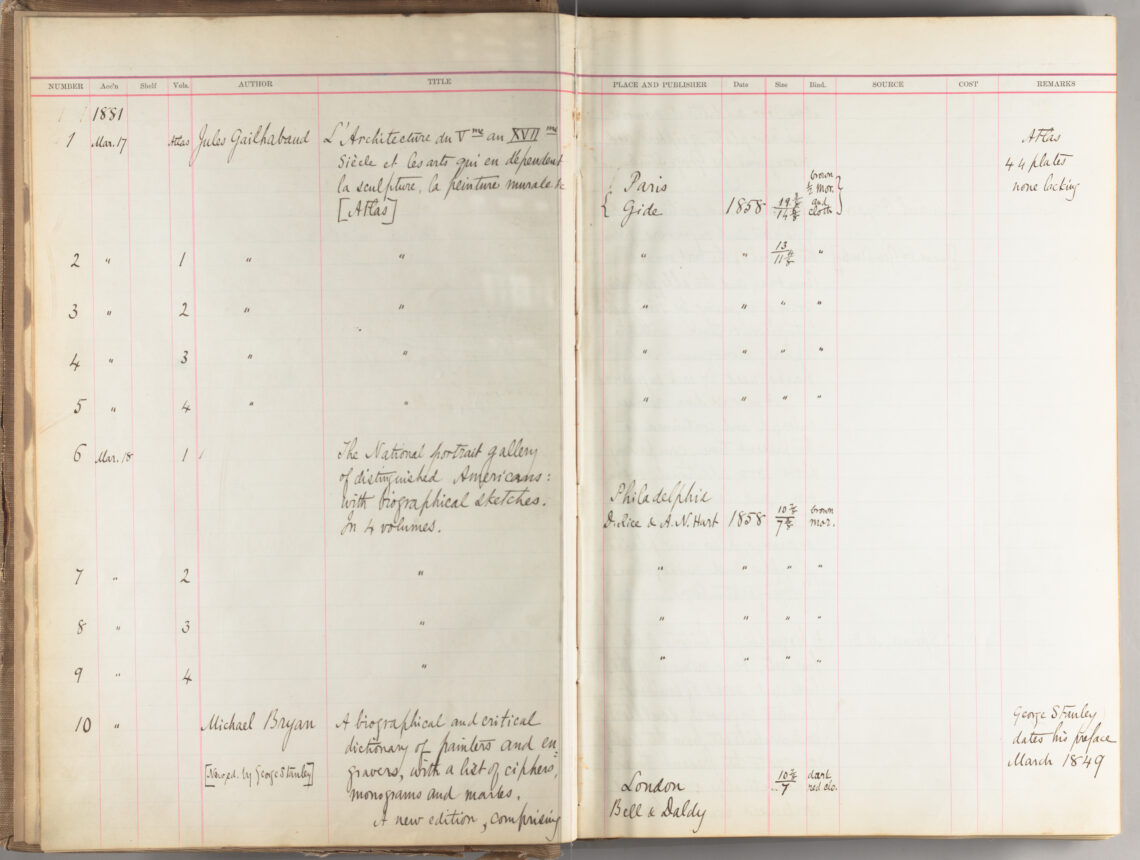 NUMBER Acc'n Shelf Vols. AUTHOR TITLE PLACE AND PUBLISHER Date Size Bind. SOURCE COST REMARKS
1881
1 Mar. 17 Atlas Jules Gailhabaud L'Architecture du Vme au XVIIme
Siècle et les arts qui en dépendent
la sculpture, la peinture murale &c
[Atlas]
Paris
Gide 1858
brown
½ mor.
and
cloth
Atlas
44 plates
none lacking
2 " 1 " " " " 13 "
3 " 2 " " " " " "
4 " 3 " " " " " "
5 " 4 " " " " " "
6 Mar. 18 1 The National portrait gallery
of distinguished Americans:
with biographical sketches.
In 4 volumes.
Philadelphia
D. Rice & A. N. Hart 1858
brown
mor.
7 " 2 " " " " "
8 " 3 " " " " "
9 " 4 " " " " "
10 " Michael Bryan A biographical and critical
dictionary of painters and en-
[New ed. by George Stanley] gravers, with a list of ciphers,
monograms and marks.
A new edition, comprising
London
Bell & Daldy
dark
red clo.
George Stanley
dates his preface
March 1849